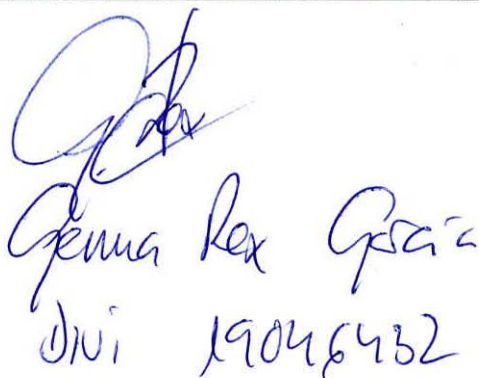 Gemma Rex García
DNi 19046432